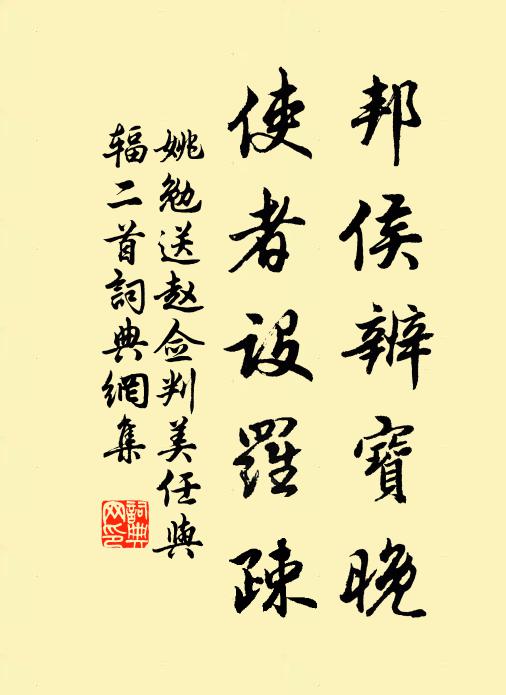 邦侯辨寶晚
使者設羅疎
姚勉送赵佥判美任與
辐二首詞典網集
詞典
网印